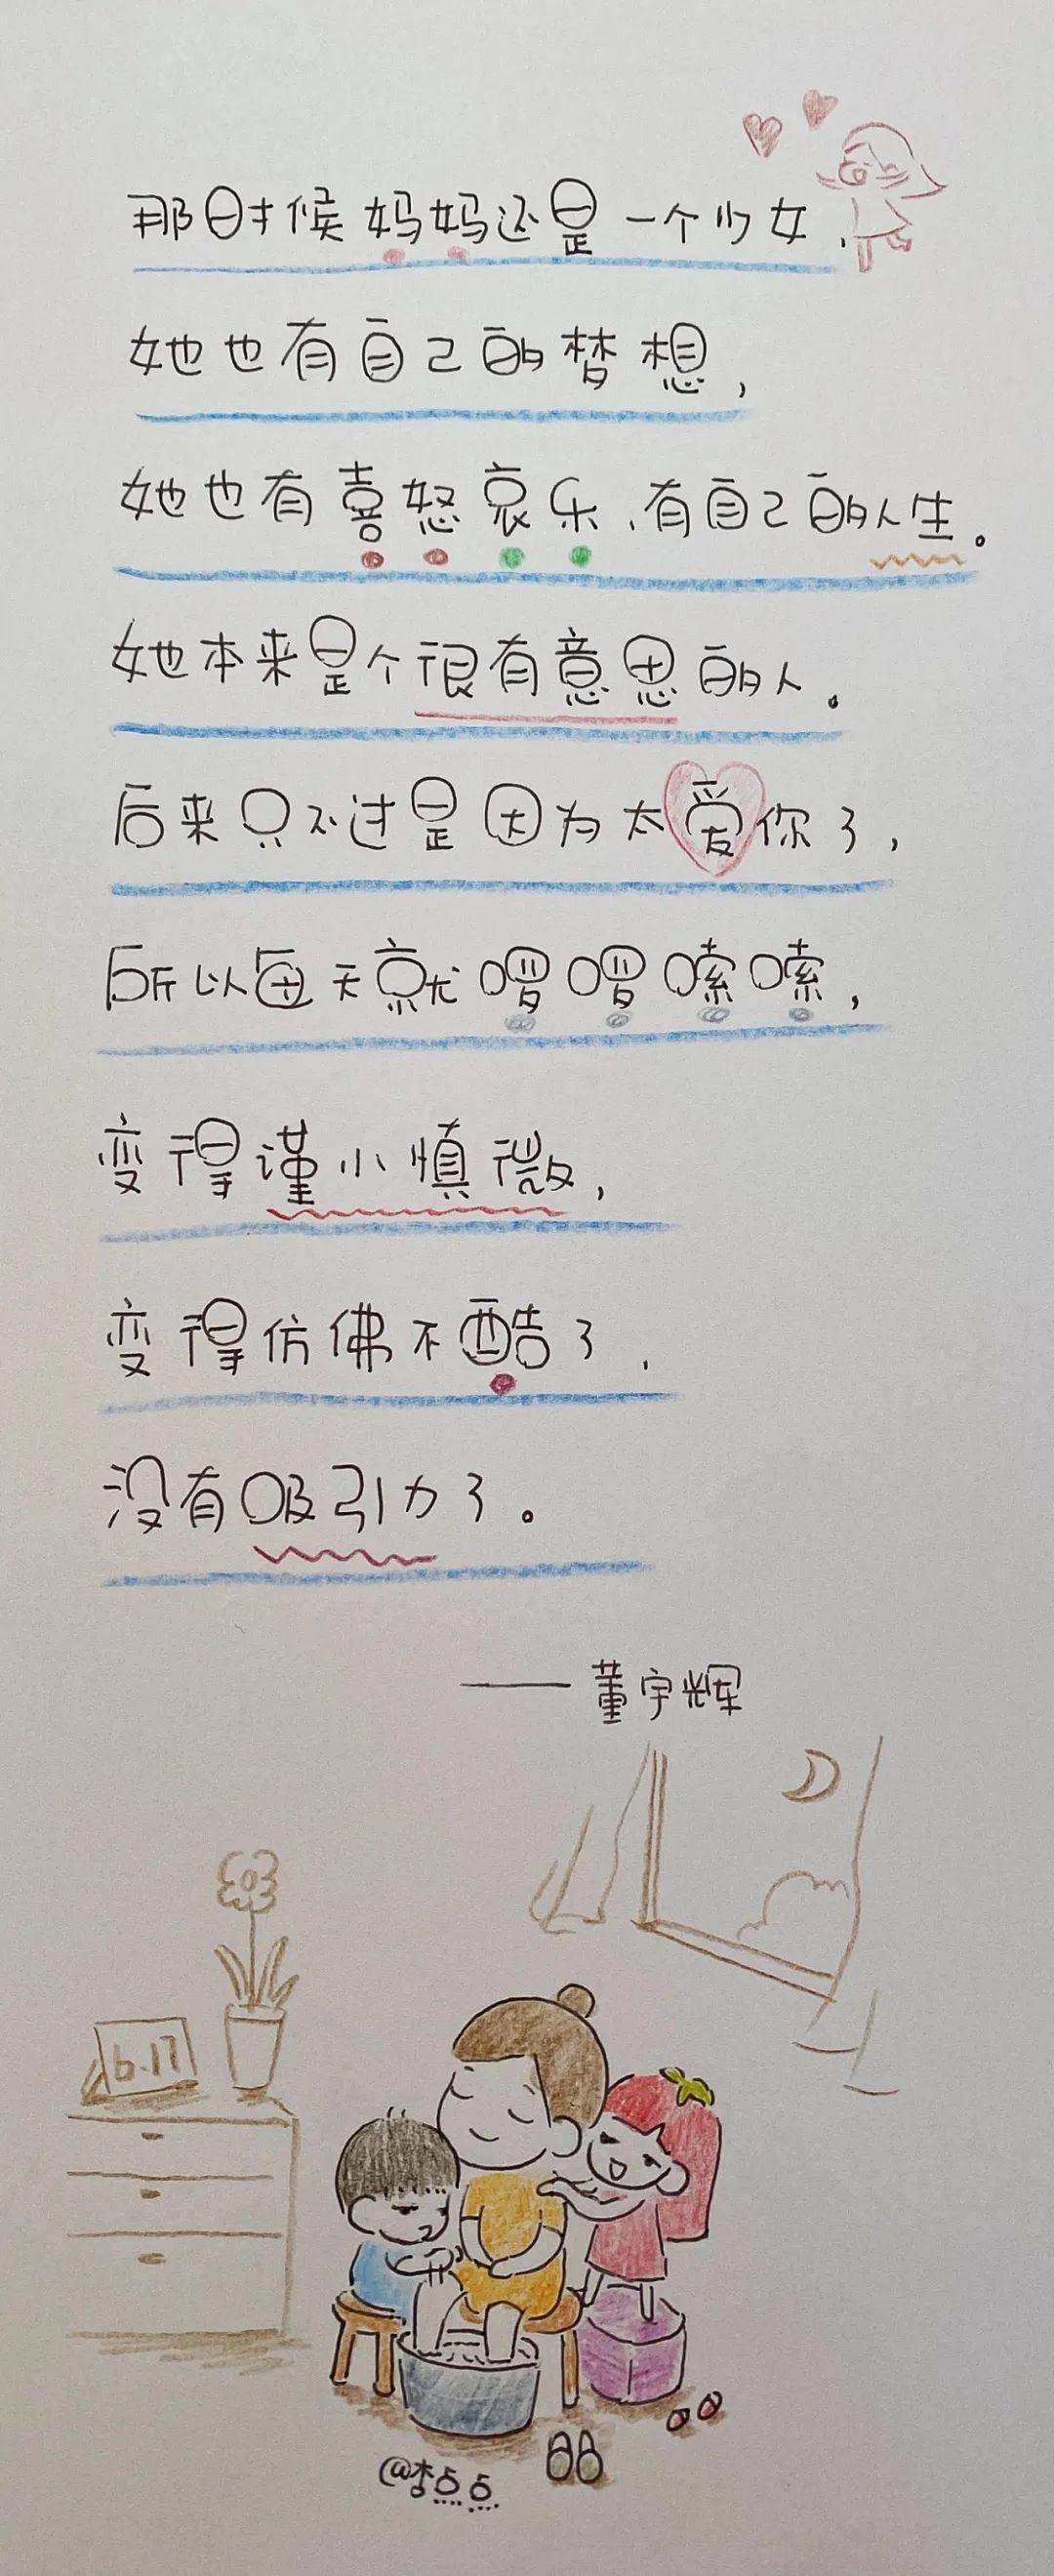 那时候妈妈还是一个少女，
她也有自己的梦想，
她也有喜怒哀乐，有自己的人生。
她本来是个很有意思的人。
后来只不过是因为太爱你了，
所以每天就啰啰嗦嗦，
变得谨小慎微，
变得仿佛不酷了，
没有吸引力了。
——董宇辉
6.17
@李点点